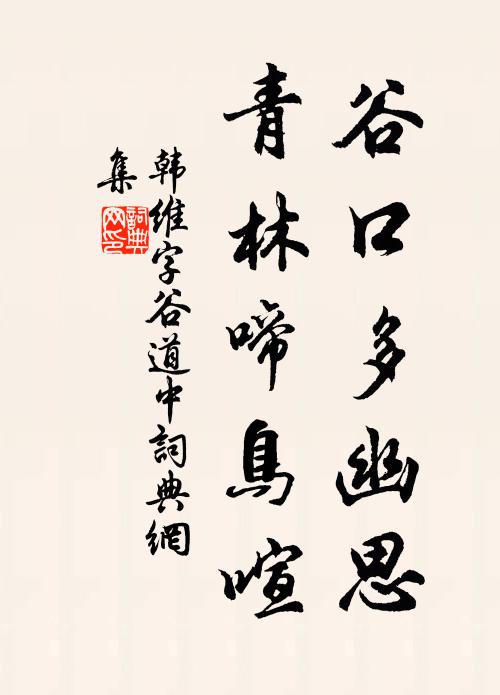 谷口多幽思
青林啼鳥喧
韩维字谷道中詞典網
集
詞典
网印